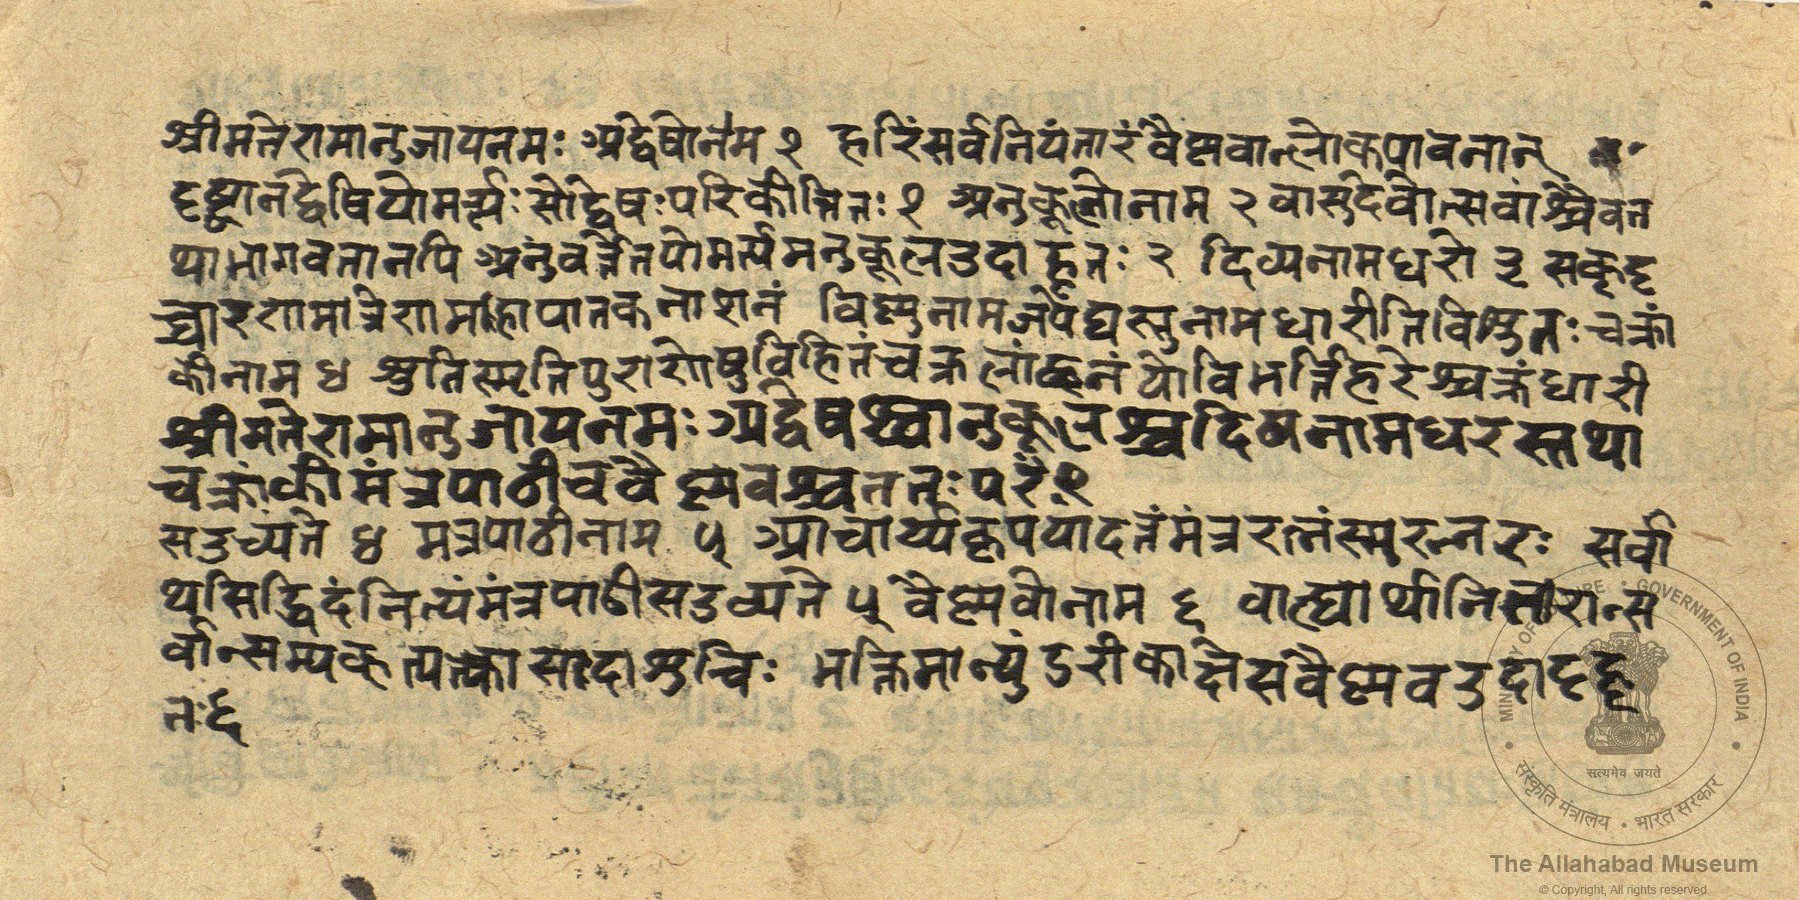 श्रीमतेरामानुजायनमः अद्वेषोर्नम १ हरिंसर्वनियंतारंवैष्णवान्लोकपावनान्
दृष्ट्वानद्वेषियोमर्त्यः सोद्वेषःपरिकीर्त्तितः १ अनुकूलोनाम २ वासुदेवोत्सवांश्चैवत
थाभागवतानपि अनुवर्त्तेतयोमर्त्यमनुकूलउदाहृतः २ दिव्यनामधरो ३ सकृदु
च्चारणमात्रेणमहापातकनाशनं विष्णुनामजपेद्यस्तुनामधारीतिविश्रुतः चक्रां
कीनाम ४ श्रुतिस्मृतिपुराणेषुविहितंचक्रलांछनं योविभर्त्तिहरेश्चक्रंधारी
श्रीमतेरामानुजायनमः अद्वेषश्चानुकूलश्चदिव्यनामधरस्तथा
चक्रांकीमंत्रपाठीचवैष्णवश्चततःपरं १
सउच्यते ४ मंत्रपाठीनाम ५ आचार्य्यकृपयादत्तंमंत्ररत्नंस्मरन्नरः सर्वा
र्थसिद्धिदंनित्यंमंत्रपाठीसउच्यते ५ वैष्णवोनाम ६ वाह्यार्थानितरान्स
र्वान्सम्यक्त्यत्क्वासदाशुचिः भक्तिमान्पुंडरीकाक्षेसवैष्णवउदाहृ
तः६
MINISTRY OF CULTURE • GOVERNMENT OF INDIA
सत्यमेव जयते
संस्कृति मंत्रालय • भारत सरकार
The Allahabad Museum
© Copyright, All rights reserved.